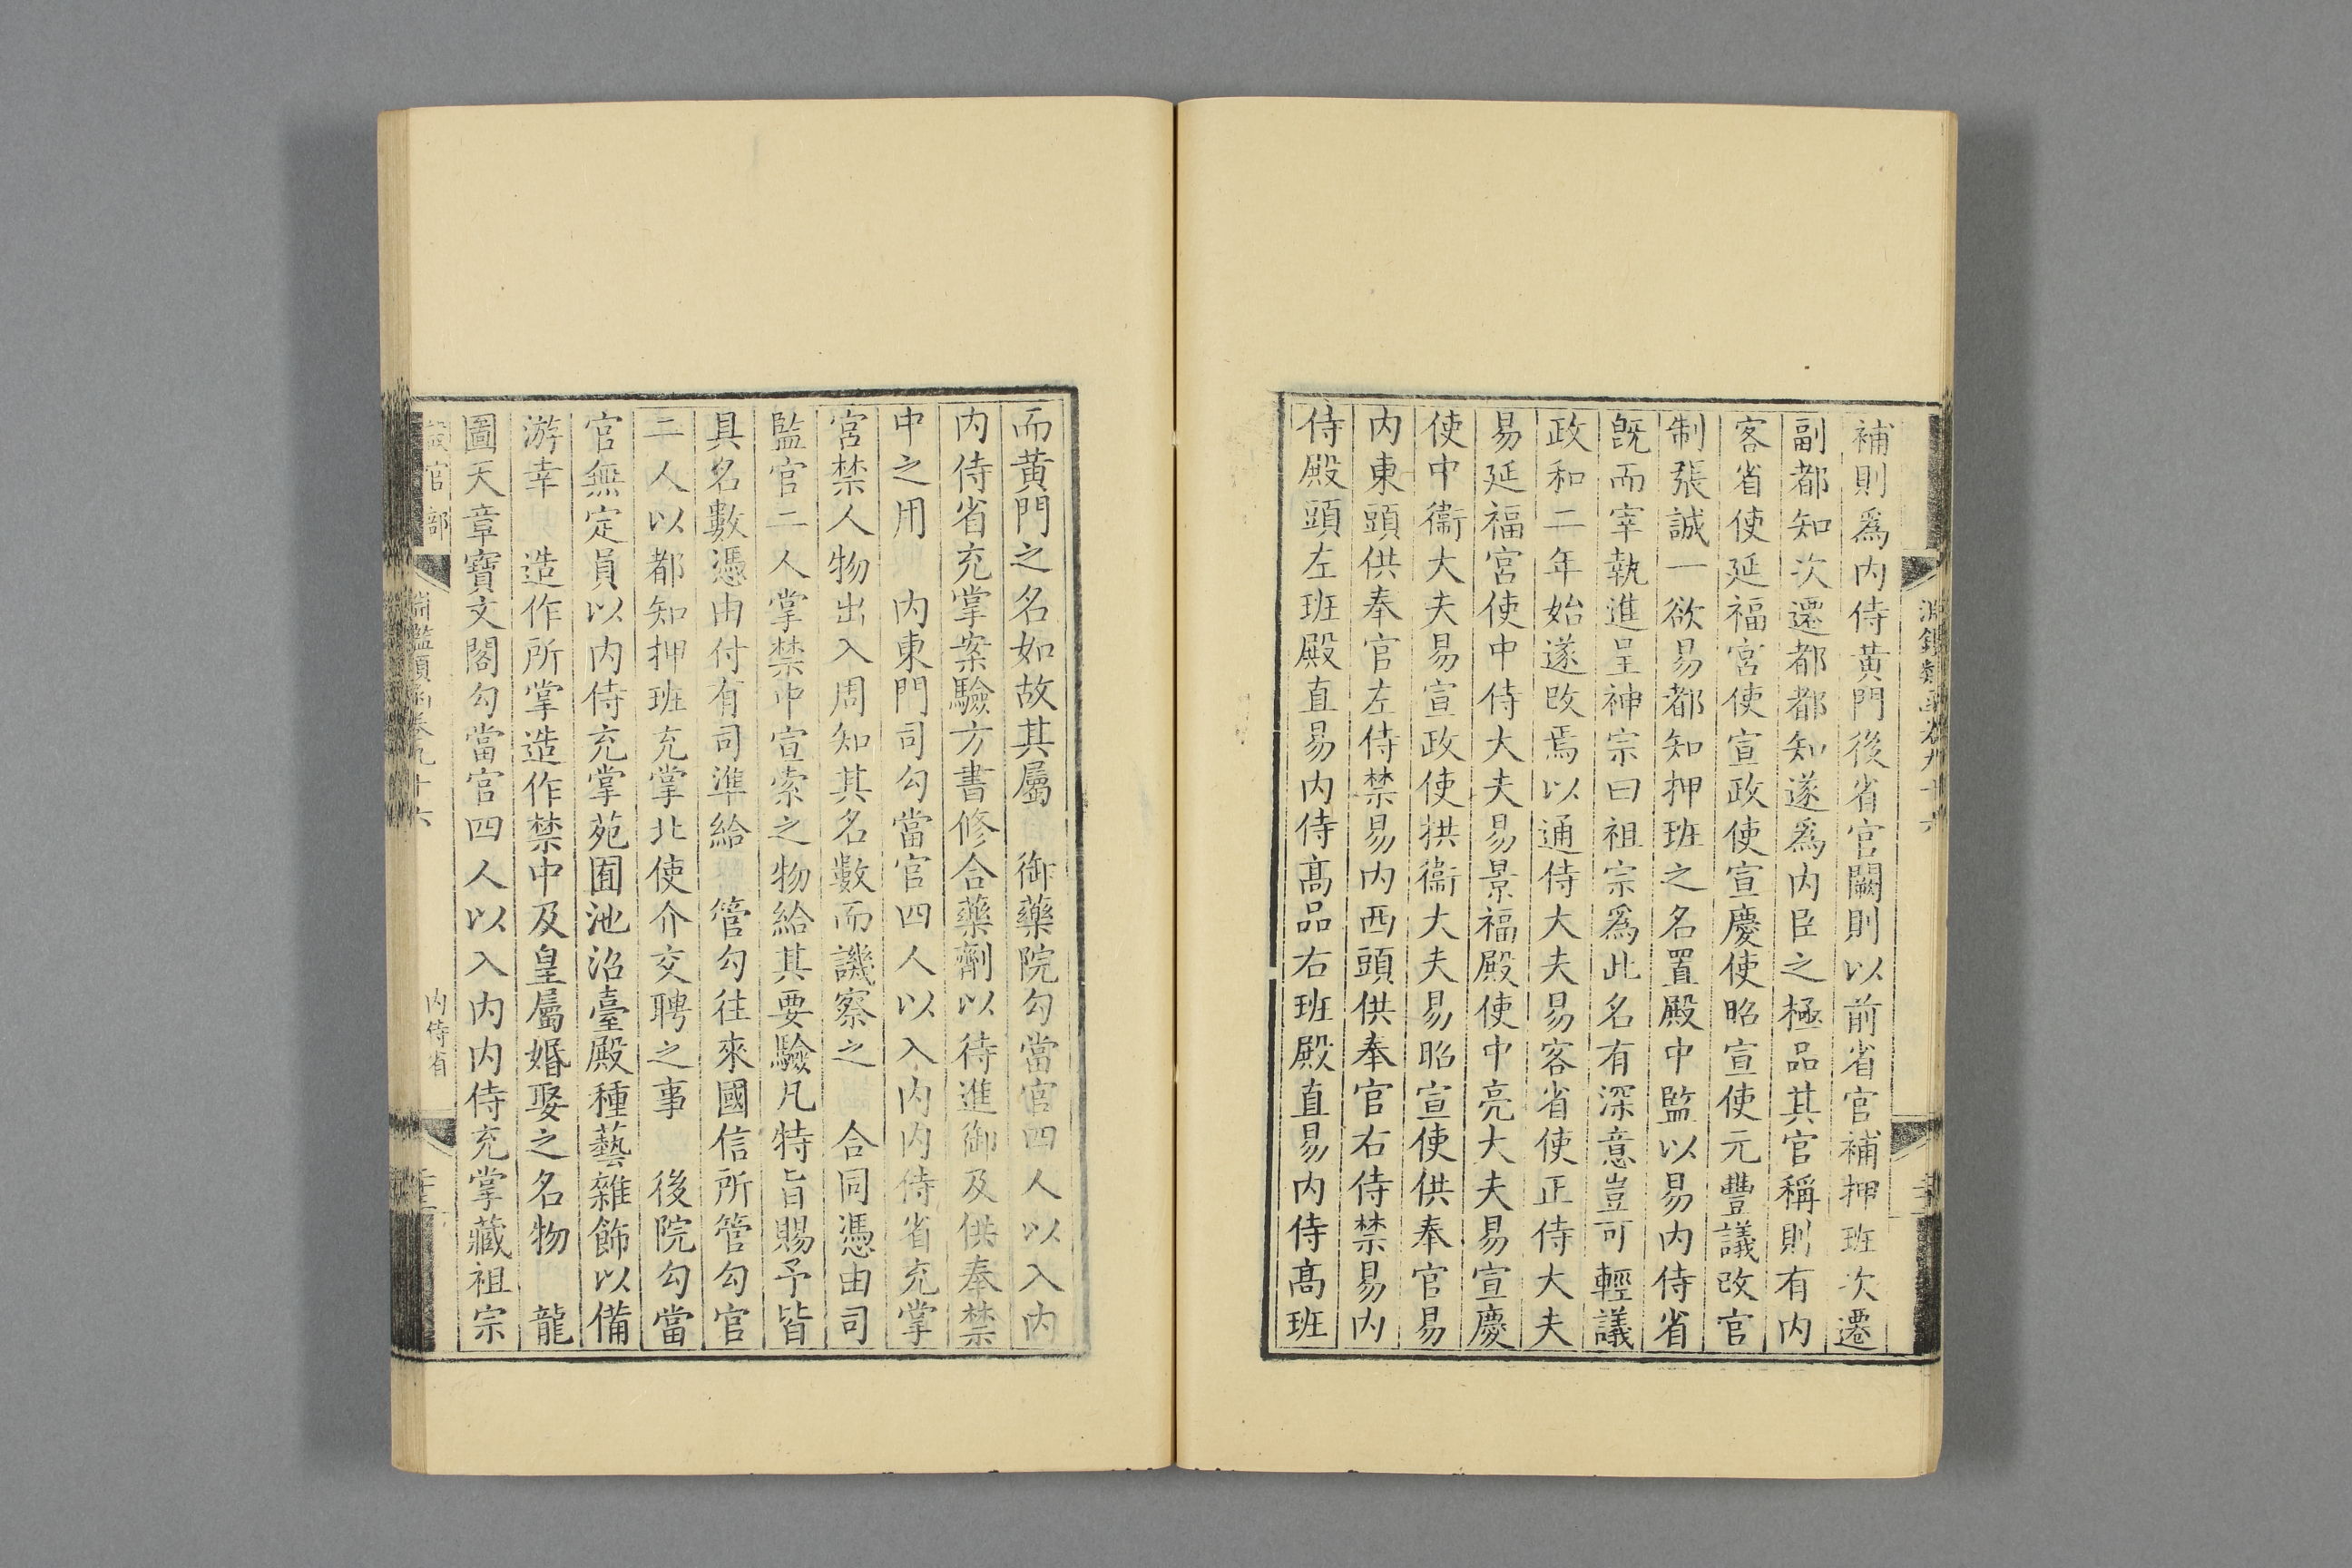 補則爲内侍黄門後省官闕則以前省官補押班次遷
副都知次遷都都知遂爲内臣之極品其官稱則有内
客省使延福宮使宣政使宣慶使昭宣使元豐議改官
制張誠一欲易都知押班之名置殿中監以易内侍省
旣而宰執進呈神宗曰祖宗爲此名有深意豈可輕議
政和二年始遂改焉以通侍大夫易客省使正侍大夫
易延福宮使中侍大夫易景福殿使中亮大夫易宣慶
使中衞大夫易宣政使拱衞大夫易昭宣使供奉官易
内東頭供奉官左侍禁易内西頭供奉官右侍禁易内
侍殿頭左班殿直易内侍髙品右班殿直易内侍髙班
而黄門之名如故其屬 御藥院勾當官四人以入内
内侍省充掌案驗方書修合藥劑以待進御及供奉禁
中之用 内東門司勾當官四人以入内内侍省充掌
宮禁人物出入周知其名數而譏察之 合同憑由司
監官二人掌禁中宣索之物給其要驗凡特旨賜予皆
具名數憑由付有司準給 管勾往來國信所管勾官
二人以都知押班充掌北使介交聘之事 後院勾當
官無定員以内侍充掌苑囿池沼臺殿種藝雜飾以備
游幸 造作所掌造作禁中及皇屬婚娶之名物 龍
圖天章寶文閣勾當官四人以入内内侍充掌藏祖宗
設官部 淵鑑類函卷九十六 内侍省